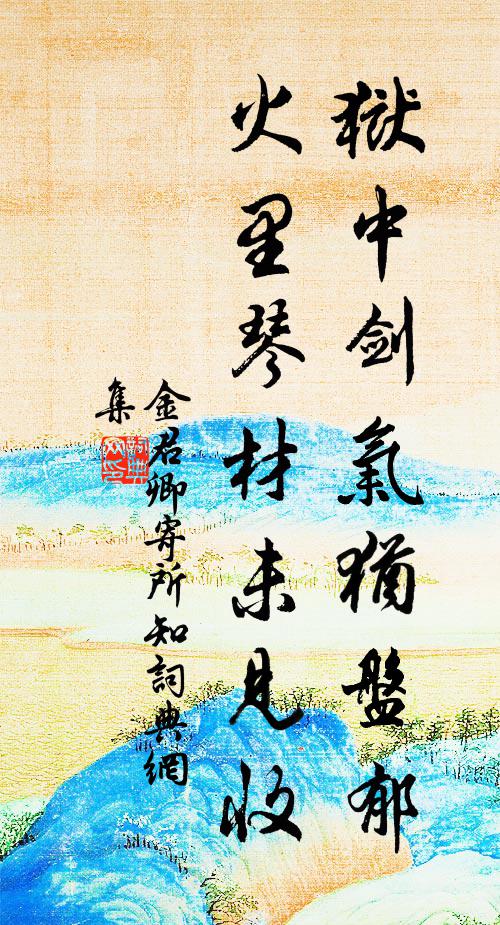 獄中劍氣猶盤郁
火里琴材未見收
金君卿寄所知詞典網
集